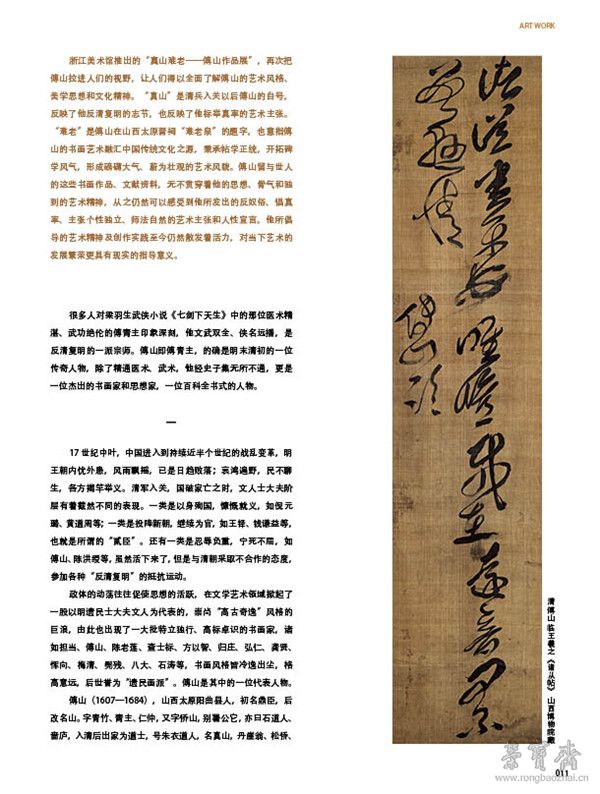 ART WORK
浙江美术馆推出的“真山难老——傅山作品展”，再次把
傅山拉进人们的视野，让人们得以全面了解傅山的艺术风格、
美学思想和文化精神。“真山”是清兵入关以后傅山的自号，
反映了他反清复明的志节，也反映了他标举真率的艺术主张。
“难老”是傅山在山西太原晋祠“难老泉”的题字，也意指傅
山的书画艺术融汇中国传统文化之源，秉承帖学正统，开拓碑
学风气，形成磅礴大气、蔚为壮观的艺术风貌。傅山留与世人
的这些书画作品、文献资料，无不贯穿着他的思想、骨气和独
到的艺术精神，从之仍然可以感受到他所发出的反奴俗、倡真
率、主张个性独立、师法自然的艺术主张和人性宣言。他所倡
导的艺术精神及创作实践至今仍然散发着活力，对当下艺术的
发展繁荣更具有现实的指导意义。
很多人对梁羽生武侠小说《七剑下天生》中的那位医术精
湛、武功绝伦的傅青主印象深刻，他文武双全、侠名远播，是
反清复明的一派宗师。傅山即傅青主，的确是明末清初的一位
传奇人物，除了精通医术、武术，他经史子集无所不通，更是
一位杰出的书画家和思想家，一位百科全书式的人物。
一
17 世纪中叶，中国进入到持续近半个世纪的战乱变革，明
王朝内忧外患，风雨飘摇，已是日趋败落；哀鸿遍野，民不聊
生，各方揭竿举义。清军入关，国破家亡之时，文人士大夫阶
层有着截然不同的表现。一类是以身殉国，慷慨就义，如倪元
璐、黄道周等；一类是投降新朝，继续为官，如王铎、钱谦益等，
也就是所谓的“贰臣”。还有一类是忍辱负重，宁死不屈，如
傅山、陈洪绶等，虽然活下来了，但是与清朝采取不合作的态度，
参加各种“反清复明”的抵抗运动。
政体的动荡往往促使思想的活跃，在文学艺术领域掀起了
一股以明遗民士大夫文人为代表的，崇尚“高古奇逸”风格的
巨浪，由此也出现了一大批特立独行、高标卓识的书画家，诸
如担当、傅山、陈老莲、查士标、方以智、归庄、弘仁、龚贤、
恽向、梅清、髡残、八大、石涛等，书画风格皆冷逸出尘，格
高意远，后世誉为“遗民画派”。傅山是其中的一位代表人物。
傅山（1607—1684），山西太原阳曲县人，初名鼎臣，后
改名山。字青竹、青主、仁仲，又字侨山，别署公它，亦曰石道人、
啬庐，入清后出家为道士，号朱衣道人，名真山，丹崖翁、松侨、
傅山临
清 傅山 临王羲之《诸从帖》 山西博物院藏
荣宝斋
www.rongbaozhai.cn
011